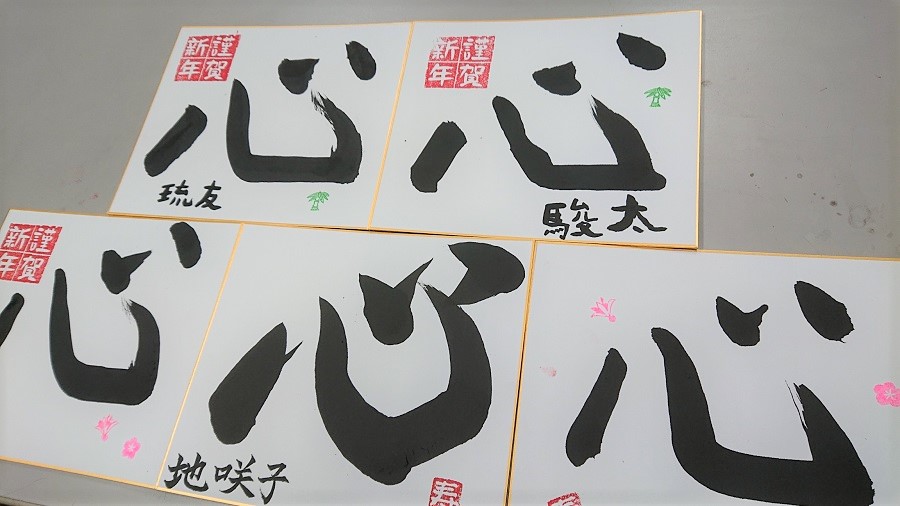 謹賀
新年
心
琉友
謹賀
新年
心
駿太
謹賀
新年
心
心
地咲子
寿
心